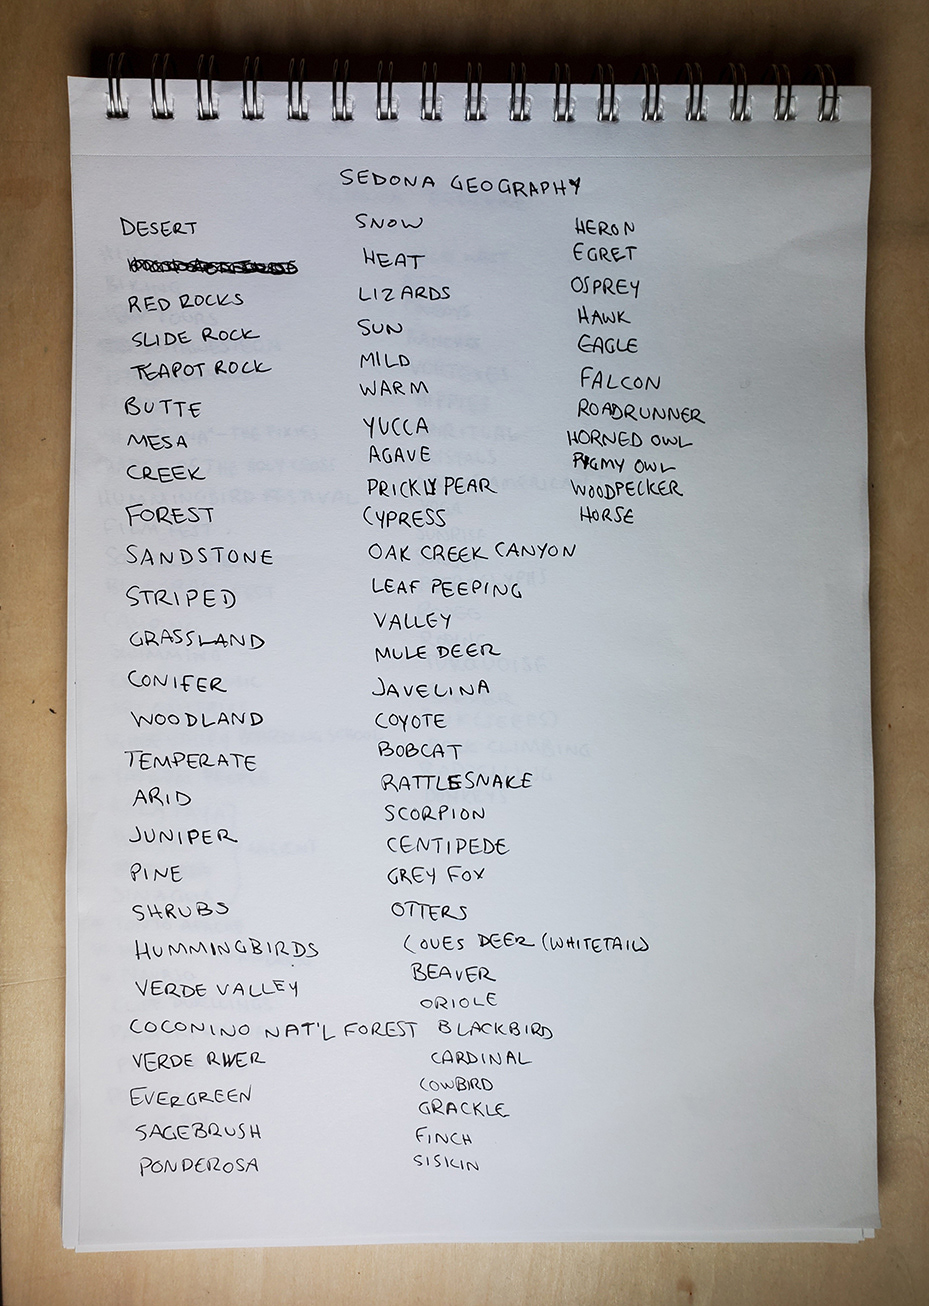 SEDONA GEOGRAPHY
DESERT
RED ROCKS
SLIDE ROCK
TEAPOT ROCK
BUTTE
MESA
CREEK
FOREST
SANDSTONE
STRIPED
GRASSLAND
CONIFER
WOODLAND
TEMPERATE
ARID
JUNIPER
PINE
SHRUBS
HUMMINGBIRDS
VERDE VALLEY
COCONINO NAT'L FOREST
VERDE RIVER
EVERGREEN
SAGEBRUSH
PONDEROSA
SNOW
HEAT
LIZARDS
SUN
MILD
WARM
YUCCA
AGAVE
PRICKLY PEAR
CYPRESS
OAK CREEK CANYON
LEAF PEEPING
VALLEY
MULE DEER
JAVELINA
COYOTE
BOBCAT
RATTLESNAKE
SCORPION
CENTIPEDE
GREY FOX
OTTERS
COUES DEER (WHITETAIL)
BEAVER
ORIOLE
BLACKBIRD
CARDINAL
COWBIRD
GRACKLE
FINCH
SISKIN
HERON
EGRET
OSPREY
HAWK
EAGLE
FALCON
ROADRUNNER
HORNED OWL
PYGMY OWL
WOODPECKER
HORSE